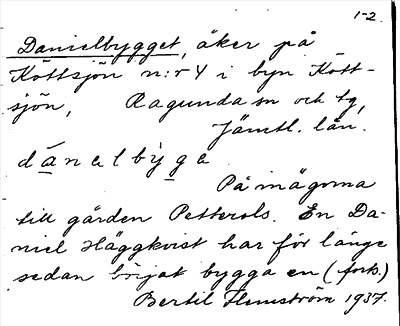 1-2.
Danielbygget, åker på
Köttsjön n:r 4 i byn Kött-
sjön, Ragunda sn och tg,
Jämtl. län.
dánalbỳga
På inägorna
till gården Petterols. En Da-
niel Häggkvist har för länge
sedan börjat bygga en (forts.)
Bertil Flemström 1937.